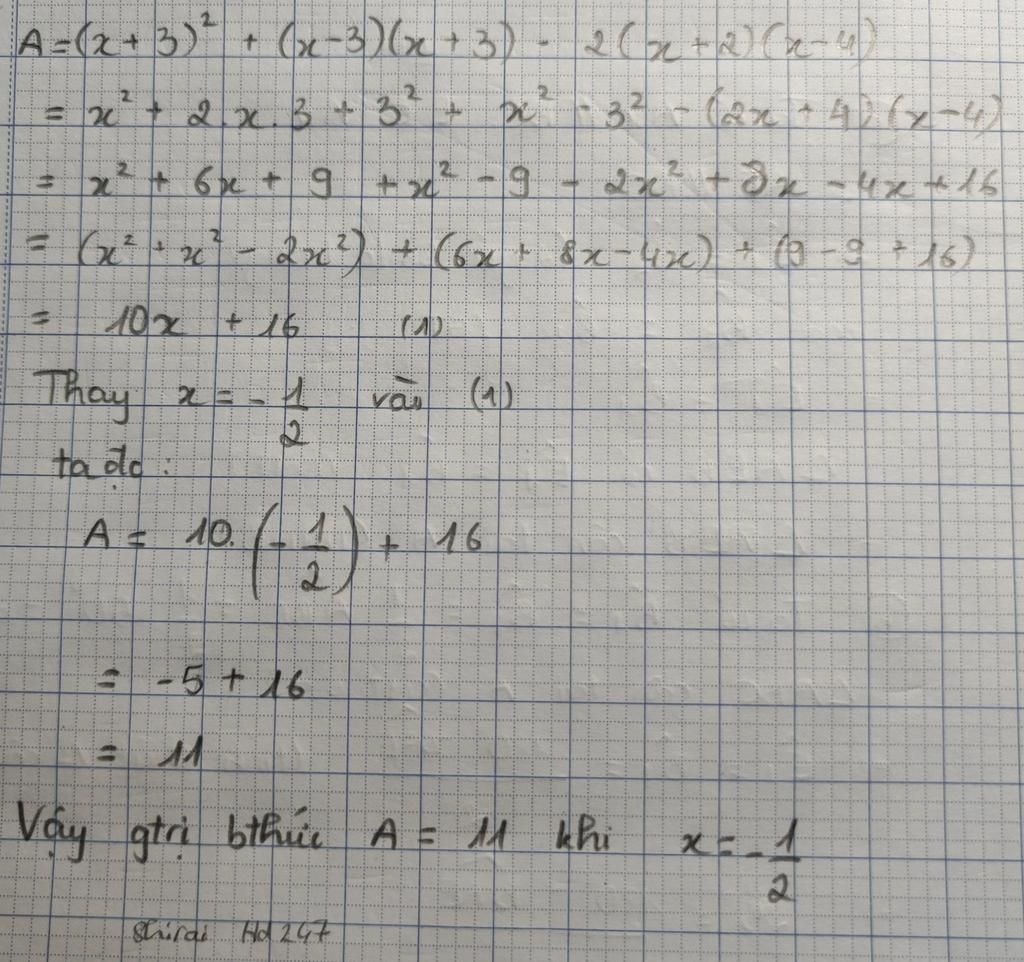 A = (x + 3)² + (x - 3)(x + 3) - 2(x + 2)(x - 4)
= x² + 2.x.3 + 3² + x² - 3² - (2x + 4).(x - 4)
= x² + 6x + 9 + x² - 9 - 2x² + 8x - 4x + 16
= (x² + x² - 2x²) + (6x + 8x - 4x) + (9 - 9 + 16)
= 10x + 16 (1)
Thay x = -1/2 vào (1)
ta đc :
A = 10.(-1/2) + 16
= -5 + 16
= 11
Vậy gtrị bthức A = 11 khi x = -1/2
Hd 247